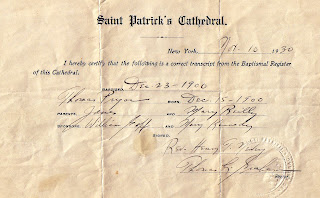 Saint Patrick's Cathedral.
New York. Nov. 10 1930
I hereby certify that the following is a correct transcript from the Baptismal Register
of this Cathedral.
BAPTIZED Dec 23-1900
Thomas Pryor BORN Dec 15-1900
PARENTS James AND Mary Reilly
SPONSORS William AND Mary
SIGNED,
Rev. Henry F.
Thomas G.